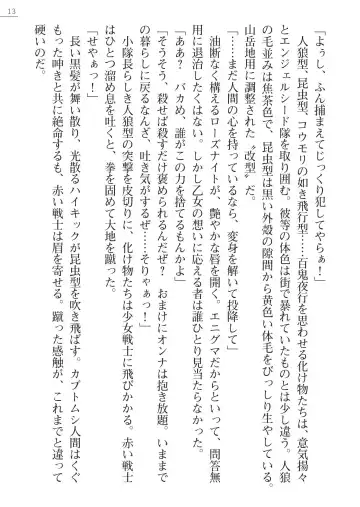 13
「よぉうし、ふん捕まえてじっくり犯してやらぁ！」
　人狼型、昆虫型、コウモリの如き飛行型……百鬼夜行を思わせる化け物たちは、意気揚々
とエンジェルシード隊を取り囲む。彼等の体色は街で暴れていたものとは少し違う。人狼
の毛並みは焦茶色で、昆虫型は黒い外殻の隙間から黄色い体毛をびっしり生やしている。
山岳地用に調整された〝改型〟だ。
「……まだ人間の心を持っているなら、変身を解いて投降して」
　油断なく構えるローズナイトが、艶やかな唇を開く。エニグマだからといって、問答無
用に退治したくはない。しかし乙女の想いに応える者は誰ひとり見当たらない。
「ああ？　バカめ、誰がこの力を捨てるもんかよ」
「そうそう、殺せば殺すだけ褒められるんだぜ？　おまけにオンナは抱き放題。いままで
の暮らしに戻るなんざ、吐き気がするぜ……そりゃぁっ！」
　小隊長らしき人狼型の突撃を皮切りに、化け物たちは少女戦士に飛びかかる。赤い戦士
はひとつ溜め息を吐くと、拳を固めて大地を蹴った。
「せやぁっ！」
　長い黒髪が舞い散り、光散るハイキックが昆虫型を吹き飛ばす。カブトムシ人間はくぐ
もった呻きと共に絶命するも、赤い戦士は眉を寄せる。蹴った感触が、これまでと違って
硬いのだ。